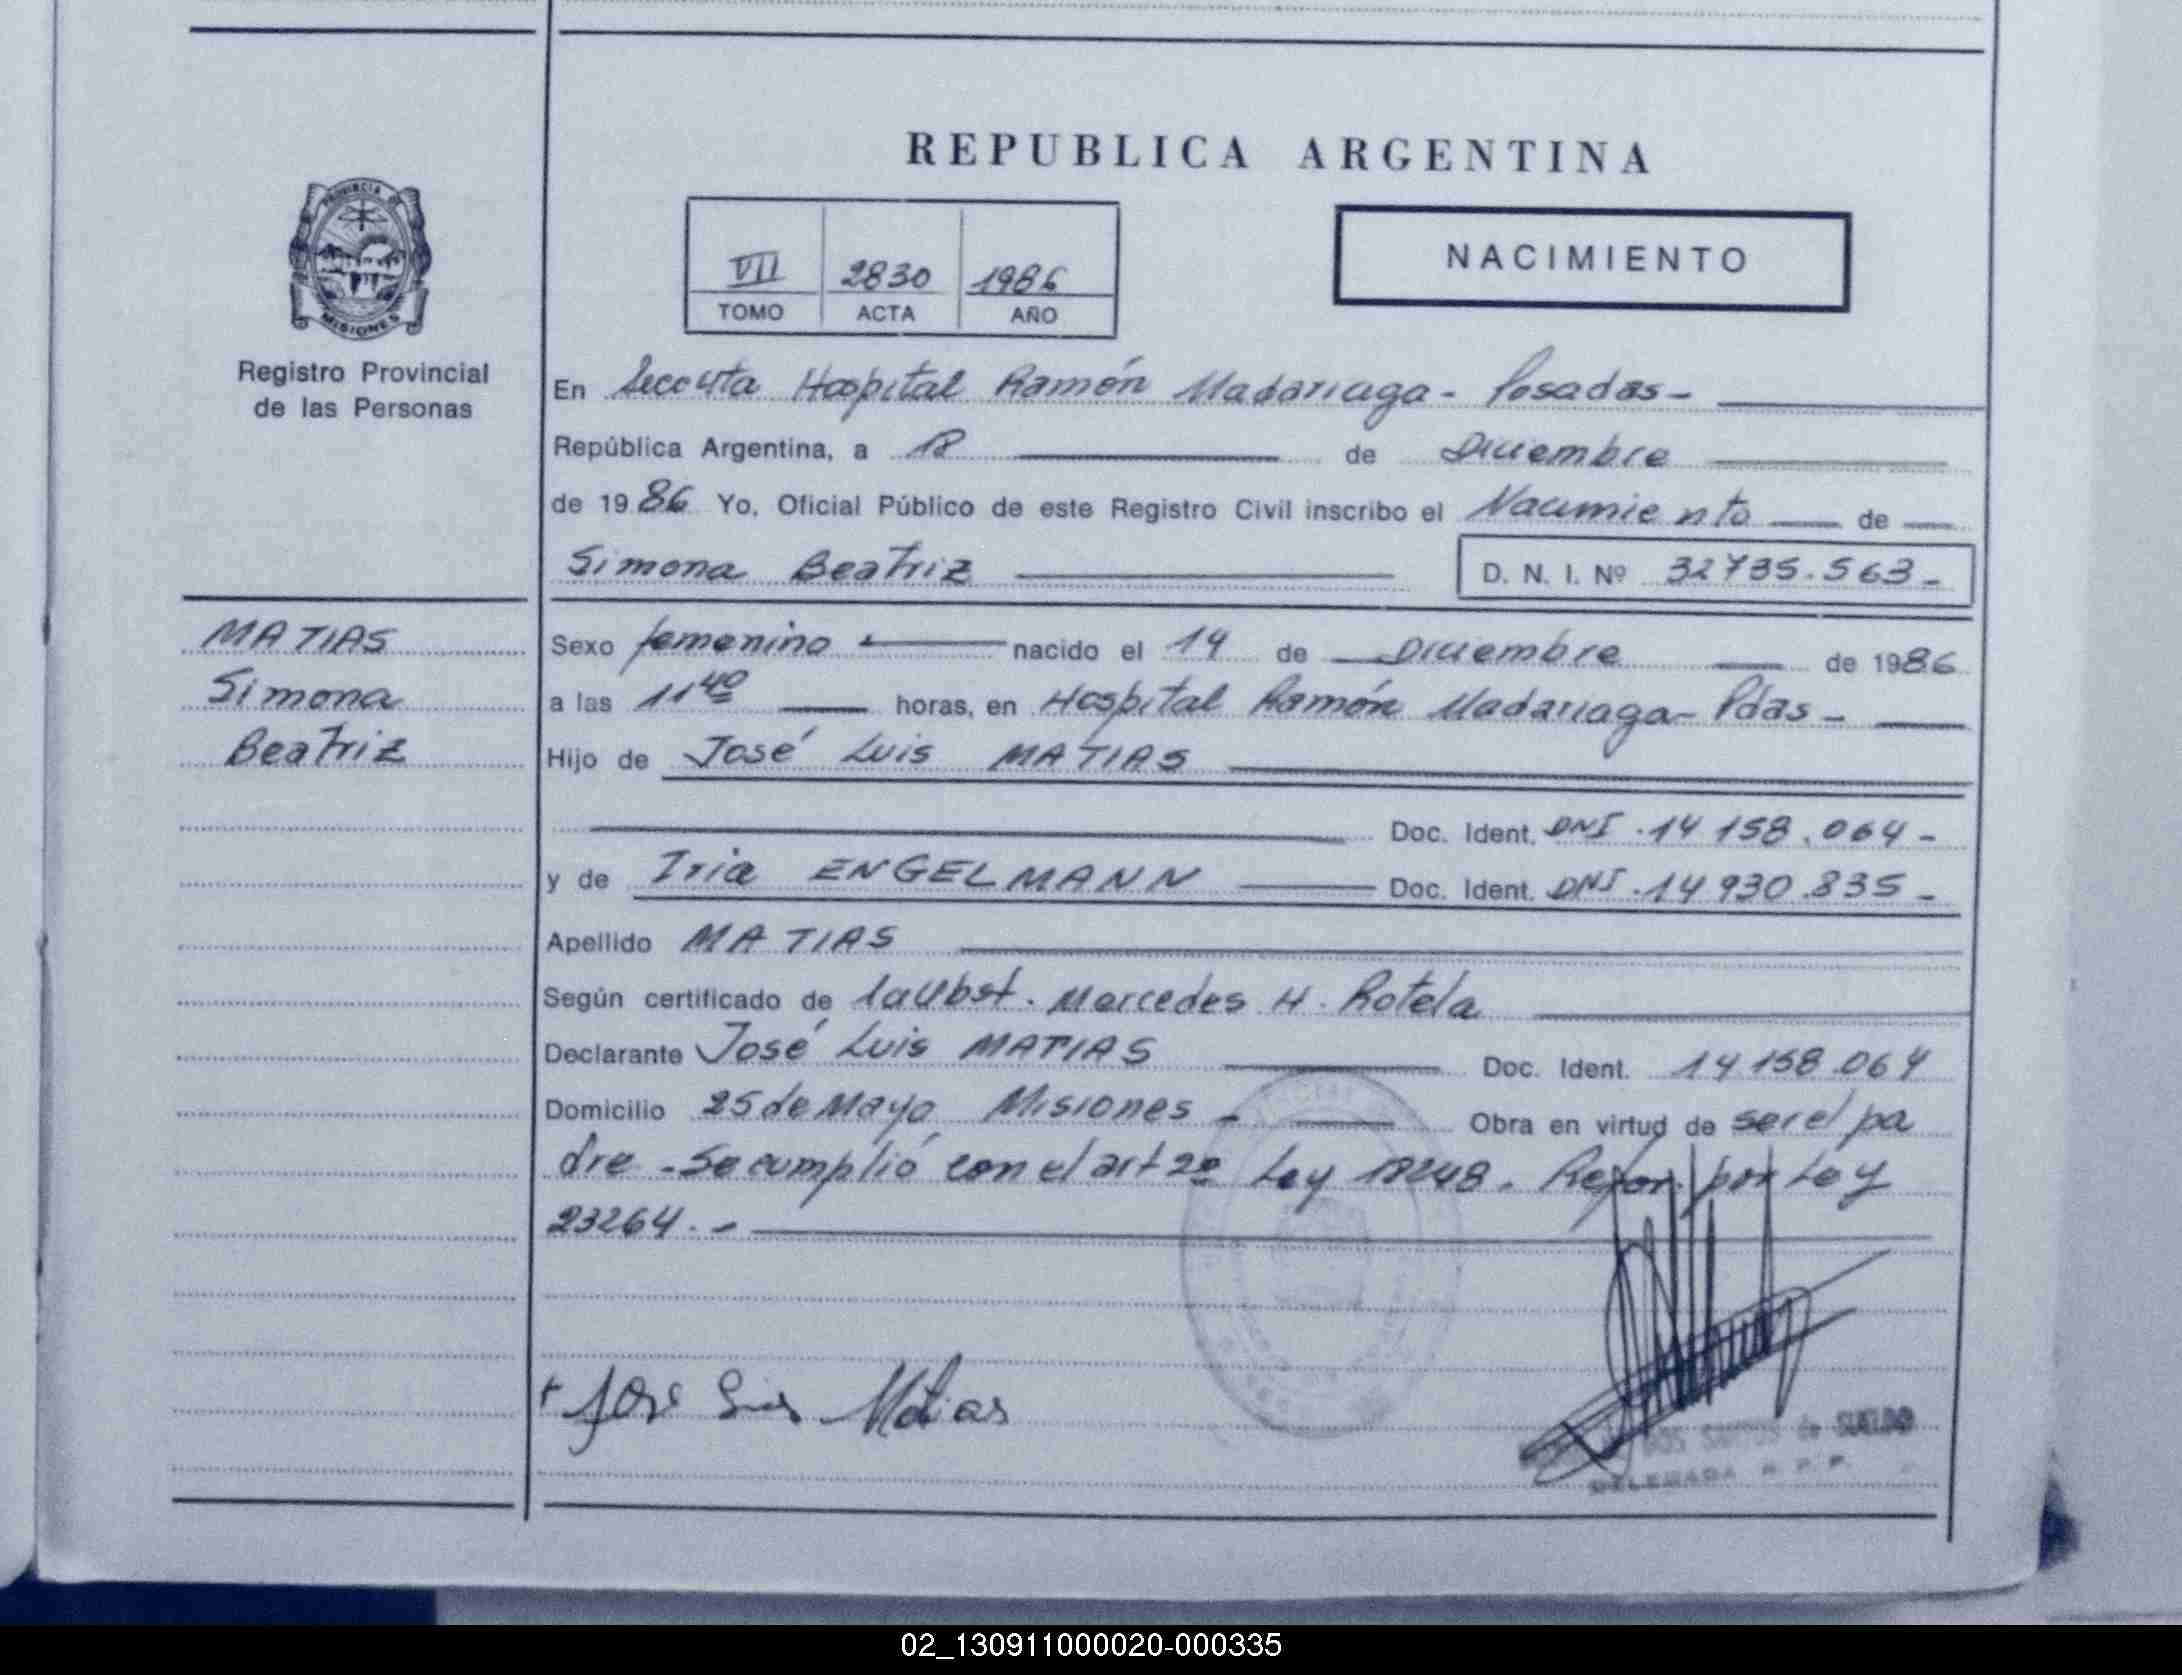 REPUBLICA ARGENTINA
PROVINCIA DE
MISIONES
Registro Provincial
de las Personas
VII 2830 1986
TOMO ACTA AÑO
NACIMIENTO
En Seccuta Hospital Ramón Madariaga - Posadas -
República Argentina, a 18 de Diciembre
de 1986 Yo, Oficial Público de este Registro Civil inscribo el Nacimiento de
Simona Beatriz D. N. I. Nº 32735.563-
MATIAS
Simona
Beatriz
Sexo femenino nacido el 14 de Diciembre de 1986
a las 11 40 horas, en Hospital Ramón Madariaga - Pdas -
Hijo de José Luis MATIAS
Doc. Ident. DNI. 14 158.064-
y de Iria ENGELMANN Doc. Ident. DNI. 14 930.835-
Apellido MATIAS
Según certificado de la Obst. Mercedes H. Rotela
Declarante José Luis MATIAS Doc. Ident. 14 158.064
Domicilio 25 de Mayo, Misiones - Obra en virtud de ser el pa
dre - Se cumplió con el art 2º Ley 18248. Refor. por Ley
23264.-
José Luis Matias
DOS SANTOS de SUELDO
DELEGADA R. P. P.
02_130911000020-000335